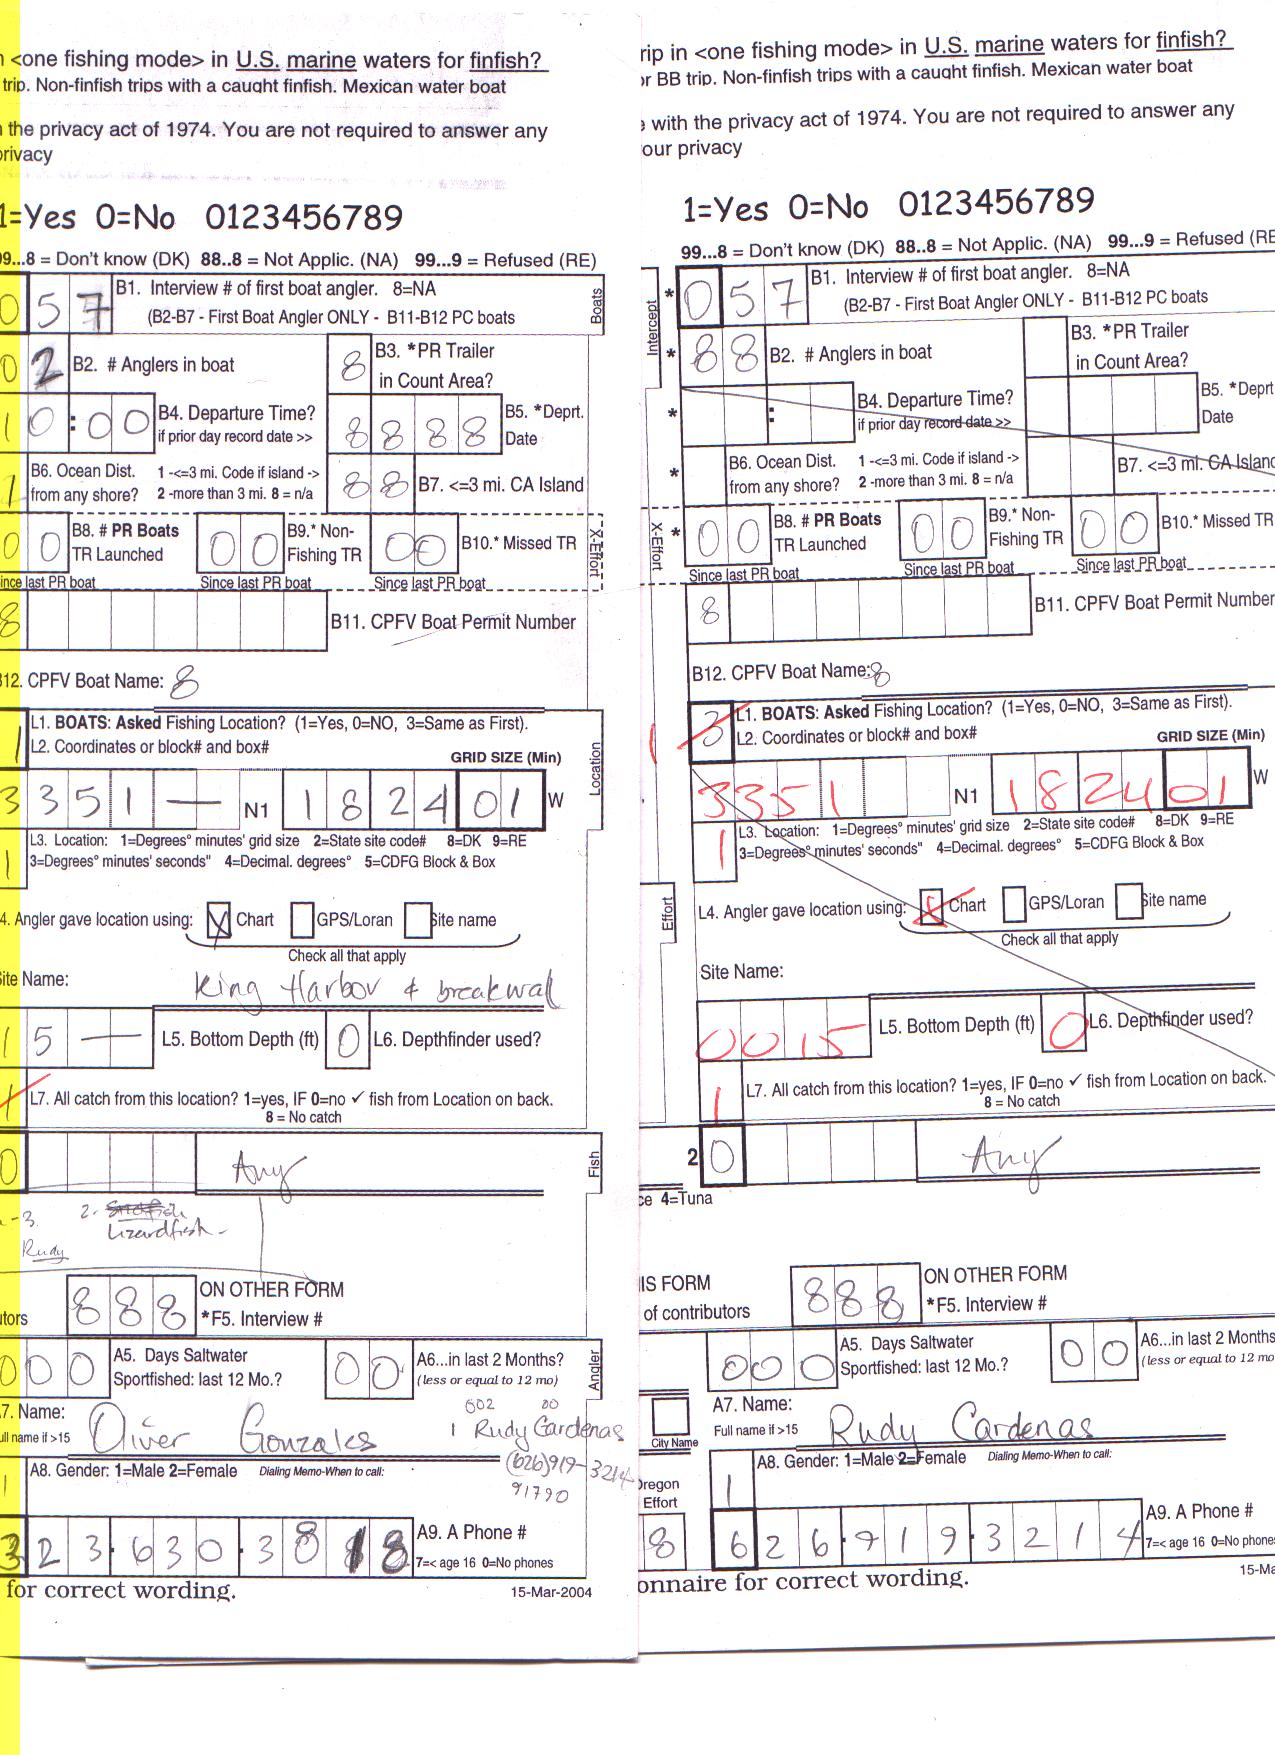 <one fishing mode> in U.S. marine waters for finfish?
trip. Non-finfish trips with a caught finfish. Mexican water boat
the privacy act of 1974. You are not required to answer any
privacy
1=Yes 0=No 0123456789
99...8 = Don't know (DK) 88..8 = Not Applic. (NA) 99...9 = Refused (RE)
057 B1. Interview # of first boat angler. 8=NA
(B2-B7 - First Boat Angler ONLY - B11-B12 PC boats
Boats
02 B2. # Anglers in boat 8 B3. *PR Trailer
in Count Area?
10:00 B4. Departure Time? 8888 B5. *Deprt.
if prior day record date >> Date
1 B6. Ocean Dist. 1 -<=3 mi. Code if island -> 88 B7. <=3 mi. CA Island
from any shore? 2 -more than 3 mi. 8 = n/a
00 B8. # PR Boats 00 B9.* Non- 00 B10.* Missed TR
TR Launched Fishing TR
X-Effort
Since last PR boat Since last PR boat Since last PR boat
8 B11. CPFV Boat Permit Number
B12. CPFV Boat Name: 8
1 L1. BOATS: Asked Fishing Location? (1=Yes, 0=NO, 3=Same as First).
L2. Coordinates or block# and box# GRID SIZE (Min)
3351 — N1 1824 01 W
Location
1 L3. Location: 1=Degrees° minutes' grid size 2=State site code# 8=DK 9=RE
3=Degrees° minutes' seconds" 4=Decimal. degrees° 5=CDFG Block & Box
4. Angler gave location using: X Chart GPS/Loran Site name
Check all that apply
Site Name: King Harbor & breakwall
15 — L5. Bottom Depth (ft) 0 L6. Depthfinder used?
1 L7. All catch from this location? 1=yes, IF 0=no ✓ fish from Location on back.
8 = No catch
0 Any
Fish
-3. 2.
Lizardfish-
Rudy
tors 888 ON OTHER FORM
*F5. Interview #
000 A5. Days Saltwater 00 A6...in last 2 Months?
Sportfished: last 12 Mo.? (less or equal to 12 mo)
Angler
002 00
7. Name: Oliver Gonzales 1 Rudy Cardenas
ull name if >15
(626)919-3214
91790
1 A8. Gender: 1=Male 2=Female Dialing Memo-When to call:
323.630.3818 A9. A Phone #
7=< age 16 0=No phones
for correct wording.
15-Mar-2004
rip in <one fishing mode> in U.S. marine waters for finfish?
or BB trip. Non-finfish trips with a caught finfish. Mexican water boat
with the privacy act of 1974. You are not required to answer any
our privacy
1=Yes 0=No 0123456789
99...8 = Don't know (DK) 88..8 = Not Applic. (NA) 99...9 = Refused (RE
Intercept
* 057 B1. Interview # of first boat angler. 8=NA
(B2-B7 - First Boat Angler ONLY - B11-B12 PC boats
* 88 B2. # Anglers in boat B3. *PR Trailer
in Count Area?
* : B4. Departure Time? B5. *Deprt
if prior day record date >> Date
* B6. Ocean Dist. 1 -<=3 mi. Code if island -> B7. <=3 mi. CA Island
from any shore? 2 -more than 3 mi. 8 = n/a
X-Effort
* 00 B8. # PR Boats 00 B9.* Non- 00 B10.* Missed TR
TR Launched Fishing TR
Since last PR boat Since last PR boat Since last PR boat
8 B11. CPFV Boat Permit Number
B12. CPFV Boat Name: 8
1 3 L1. BOATS: Asked Fishing Location? (1=Yes, 0=NO, 3=Same as First).
L2. Coordinates or block# and box# GRID SIZE (Min)
3351 N1 1824 01 W
1 L3. Location: 1=Degrees° minutes' grid size 2=State site code# 8=DK 9=RE
3=Degrees° minutes' seconds" 4=Decimal. degrees° 5=CDFG Block & Box
Effort
L4. Angler gave location using: Chart GPS/Loran Site name
Check all that apply
Site Name:
0015 L5. Bottom Depth (ft) 0 L6. Depthfinder used?
1 L7. All catch from this location? 1=yes, IF 0=no ✓ fish from Location on back.
8 = No catch
2 0 Any
ce 4=Tuna
IS FORM 888 ON OTHER FORM
of contributors *F5. Interview #
000 A5. Days Saltwater 00 A6...in last 2 Months
Sportfished: last 12 Mo.? (less or equal to 12 mo
A7. Name: Rudy Cardenas
City Name Full name if >15
1 A8. Gender: 1=Male 2=Female Dialing Memo-When to call:
Oregon
Effort
8 626.919.3214 A9. A Phone #
7=< age 16 0=No phone
onnaire for correct wording.
15-Ma